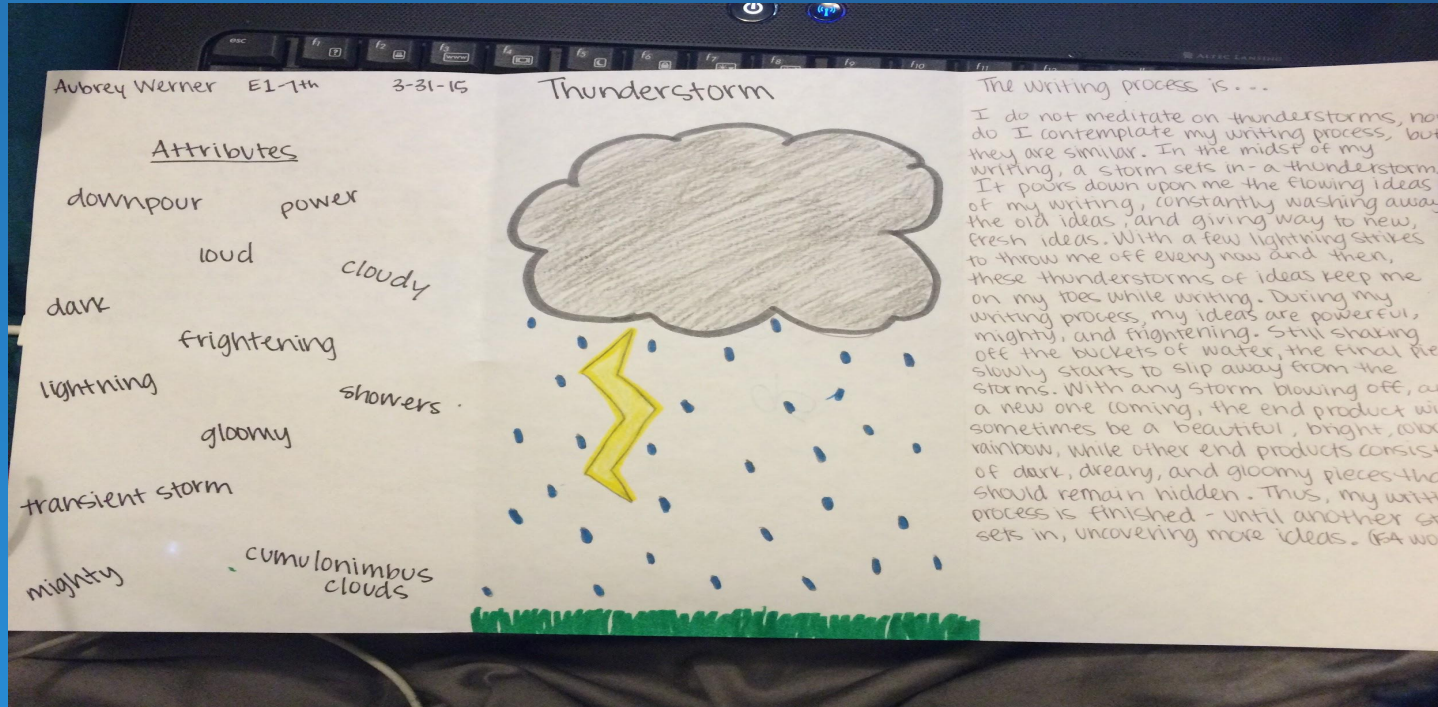 esc
f1
f2
f3
www
f4
f5
f6
f7
f8
f9
f10
f11
ALTEC LANSING
Aubrey Werner E1-7th 3-31-15
Attributes
downpour power
loud
cloudy
dark
frightening
lightning
showers
gloomy
transient storm
mighty
cumulonimbus
clouds
Thunderstorm
The writing process is...
I do not meditate on thunderstorms,
do I contemplate my writing process,
they are similar. In the midst of my
writing, a storm sets in - a thunderstorm
It pours down upon me the flowing ideas
of my writing, constantly washing away
the old ideas, and giving way to new,
fresh ideas. With a few lightning strikes
to throw me off every now and then,
these thunderstorms of ideas keep me
on my toes while writing. During my
writing process, my ideas are powerful,
mighty, and frightening. Still shaking
off the buckets of water, the final
slowly starts to slip away from the
storms. With any storm blowing off,
a new one coming, the end product
sometimes be a beautiful, bright,
rainbow, while other end products
of dark, dreary, and gloomy pieces
should remain hidden. Thus, my
process is finished - until another
sets in, uncovering more ideas.